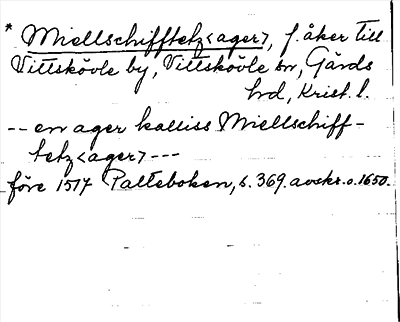 * Miellschifftetz<ager>, f. åker till
Vittskövle by, Vittskövle sn, Gärds
hd, Krist. l.
-- en ager kalliss Miellschiff-
tetz<ager> ---
före 1517 Palteboken, s. 369. avskr. o. 1650.